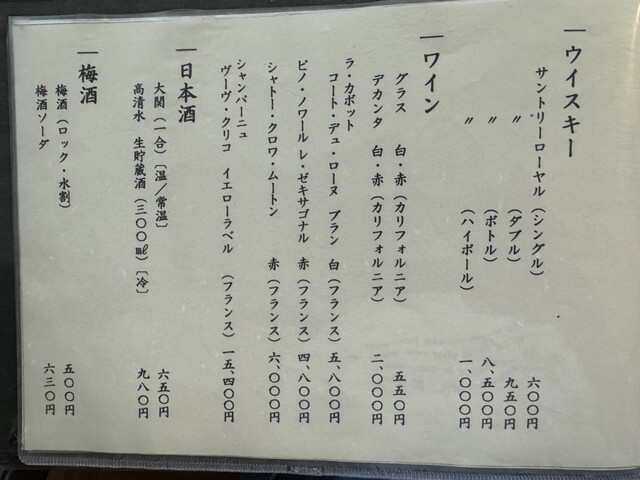 ウイスキー
サントリーローヤル（シングル） 六〇〇円
〃（ダブル） 九五〇円
〃（ボトル） 八、五〇〇円
〃（ハイボール） 一、〇〇〇円
ワイン
グラス 白・赤（カリフォルニア） 五五〇円
デカンタ 白・赤（カリフォルニア） 二、〇〇〇円
ラ・カボット
コート・デュ・ローヌ ブラン 白（フランス） 五、八〇〇円
ピノ・ノワール レ・ゼキサゴナル 赤（フランス） 四、八〇〇円
シャトー・クロワ・ムートン 赤（フランス） 六、〇〇〇円
シャンパーニュ
ヴーヴ・クリコ イエローラベル （フランス） 一五、四〇〇円
日本酒
大関（一合）〔温／常温〕 六五〇円
高清水 生貯蔵酒（三〇〇㎖）〔冷〕 九八〇円
梅酒
梅酒（ロック・水割） 五〇〇円
梅酒ソーダ 六三〇円